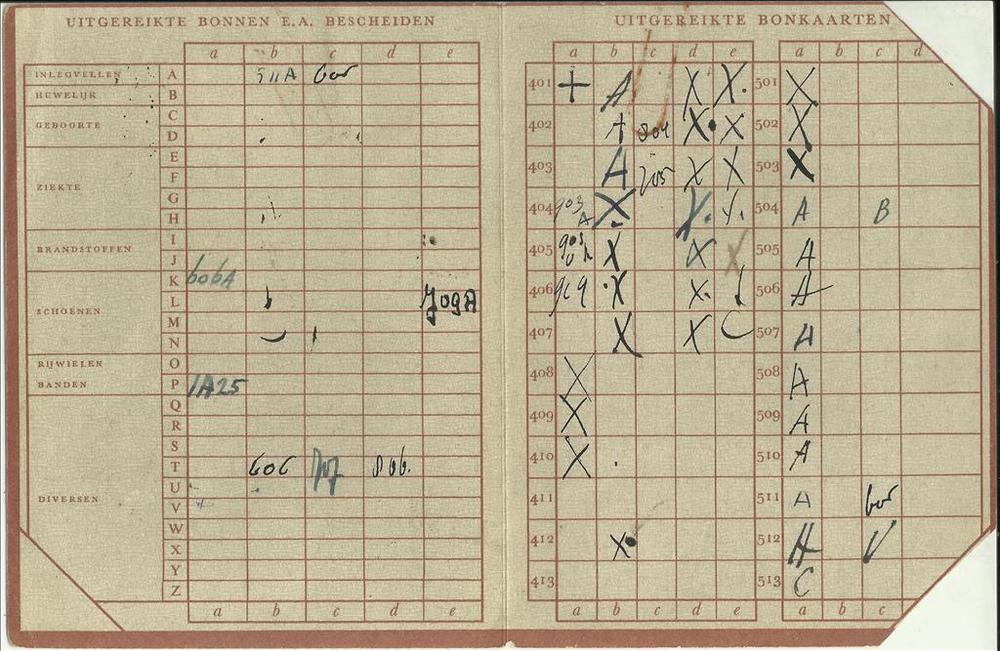 UITGEREIKTE BONNEN E.A. BESCHEIDEN
a b c d e
INLEGVELLEN A 511A 605
HUWELIJK B
GEBOORTE
C
D
ZIEKTE
E
F
G
H
BRANDSTOFFEN
I
J
SCHOENEN
K 606A
L 709A
M
N
RIJWIELEN O
BANDEN P 1A25
DIVERSEN
Q
R
S
T 606 707 806.
U
V
W
X
Y
Z
a b c d e
UITGEREIKTE BONKAARTEN
a b c d e a b c d
401 + A X X 501 X
402 A 804 X X 502 X
403 A 205 X X 503 X
404 903 A X X Y 504 A B
405 X X X 505 A
406 909 X X 506 A
407 X X 507 A
408 X 508 A
409 X 509 A
410 X 510 A
411 511 A 605
412 X 512 A V
413 513 C
a b c d e a b c